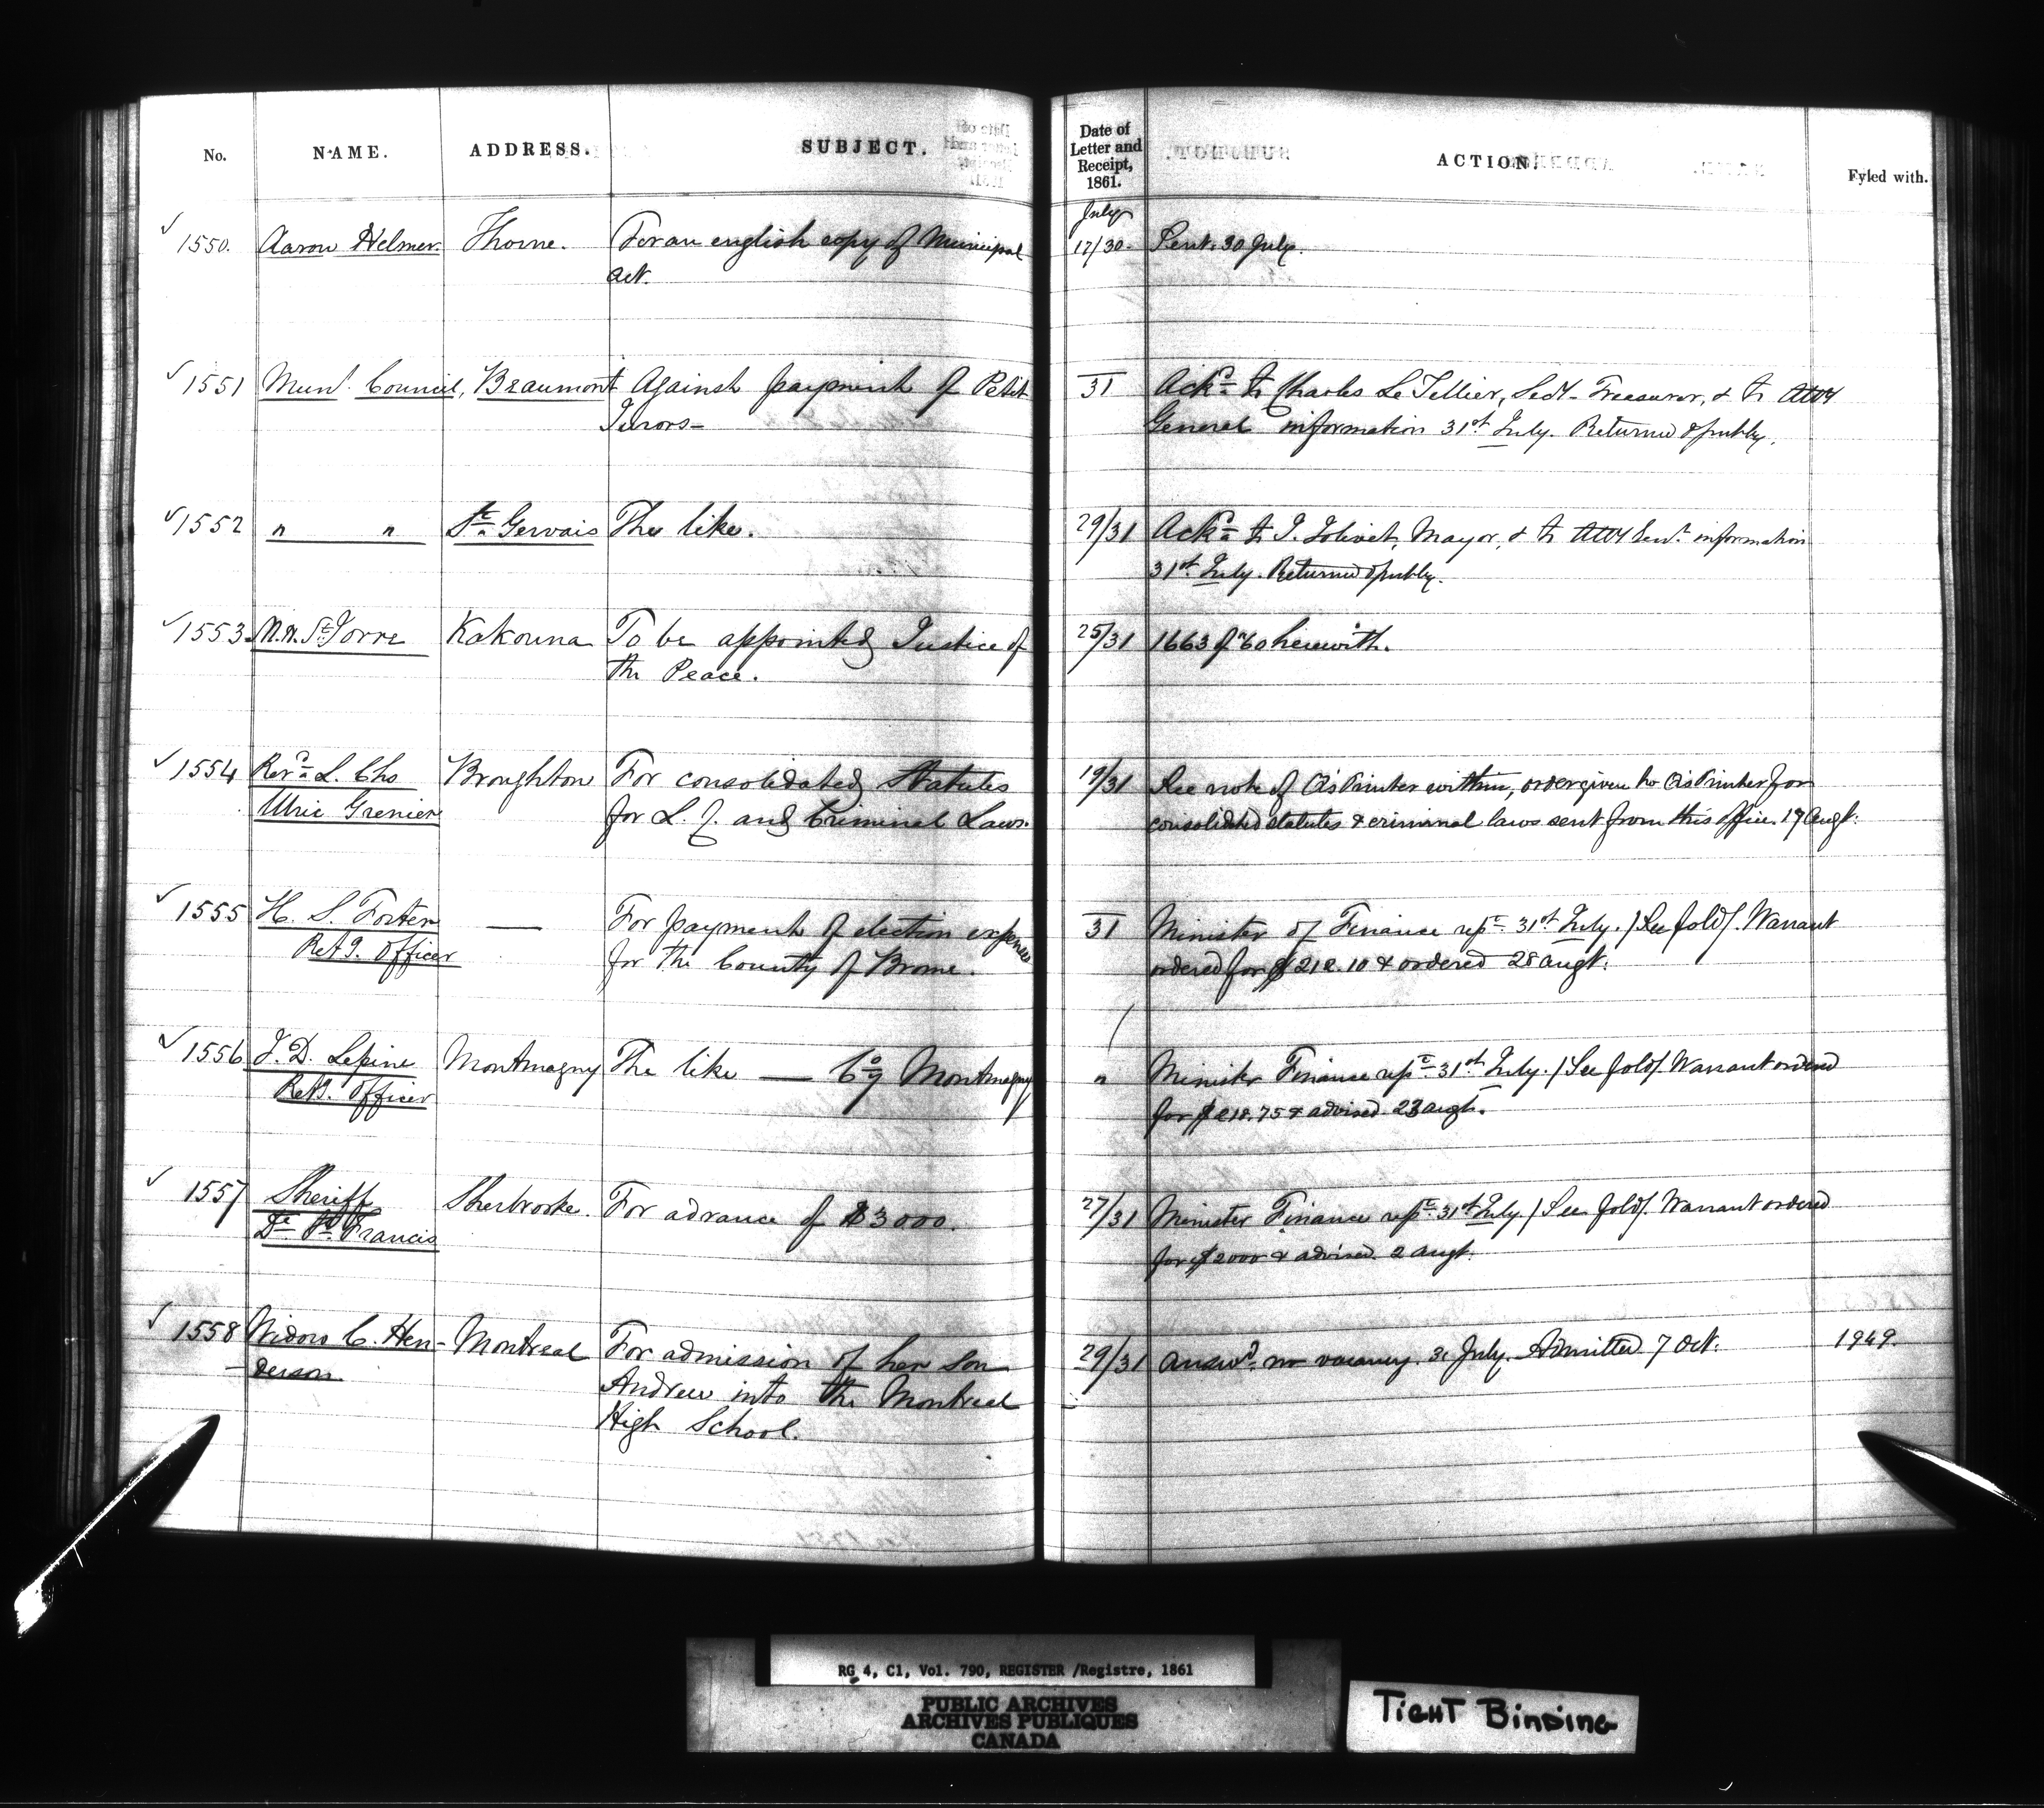 No. NAME. ADDRESS. SUBJECT. Date of Letter and Receipt, 1861. ACTION. Fyled with.
July
1550. Aaron Helmer. Thorne. For an english copy of Municipal 17/30. Sent. 30 July.
act.
1551 Munl. Council, Beaumont Against payment of Petit 31 Ackd. to Charles Le Tellier, Secy- Treasurer, & to Atty
Jurors— General information 31st July. Returned
1552 " " St. Gervais The like. 29/31 Ackd. to J. Mayor, & to Atty Genl. information
31st July. Returned
1553. Kakouna To be appointed Justice of 25/31 1663 of '60 herewith.
the Peace.
1554 Revd. L. Chs Broughton For consolidated Statutes 19/31 See note of Q's Printer within, order given to Q's Printer for
Ulric Grenier for L. C. and Criminal Laws. consolidated statutes & criminal laws sent from this office. 17 Augt.
1555 H. S. Foster — For payment of election expenses 31 Minister of Finance 31st July. /See fold/. Warrant
Retg. Officer for the County of Brome. ordered for $ 212.10 & ordered 28 augt.
1556 J. D. Lepine Montmagny The like — Coy Montmagny " Minister Finance 31st July. /See fold/. Warrant ordered
Retg. Officer for $ 218.75 & advised 23 augt.
1557 Sheriff Sherbrooke. For advance of $3000. 27/31 Minister Finance 31st July. /See fold/. Warrant ordered
Dt. St. Francis for $2000 & advised. 2 augt.
1558 Widow C. Hen- Montreal For admission of her son 29/31 Answd. no vacancy. 31 July. Admitted 7 Oct. 1949.
-derson Andrew into the Montreal
High School.
RG 4, C1, Vol. 790, REGISTER /Registre, 1861
PUBLIC ARCHIVES
ARCHIVES PUBLIQUES
CANADA
TIGHT BINDING